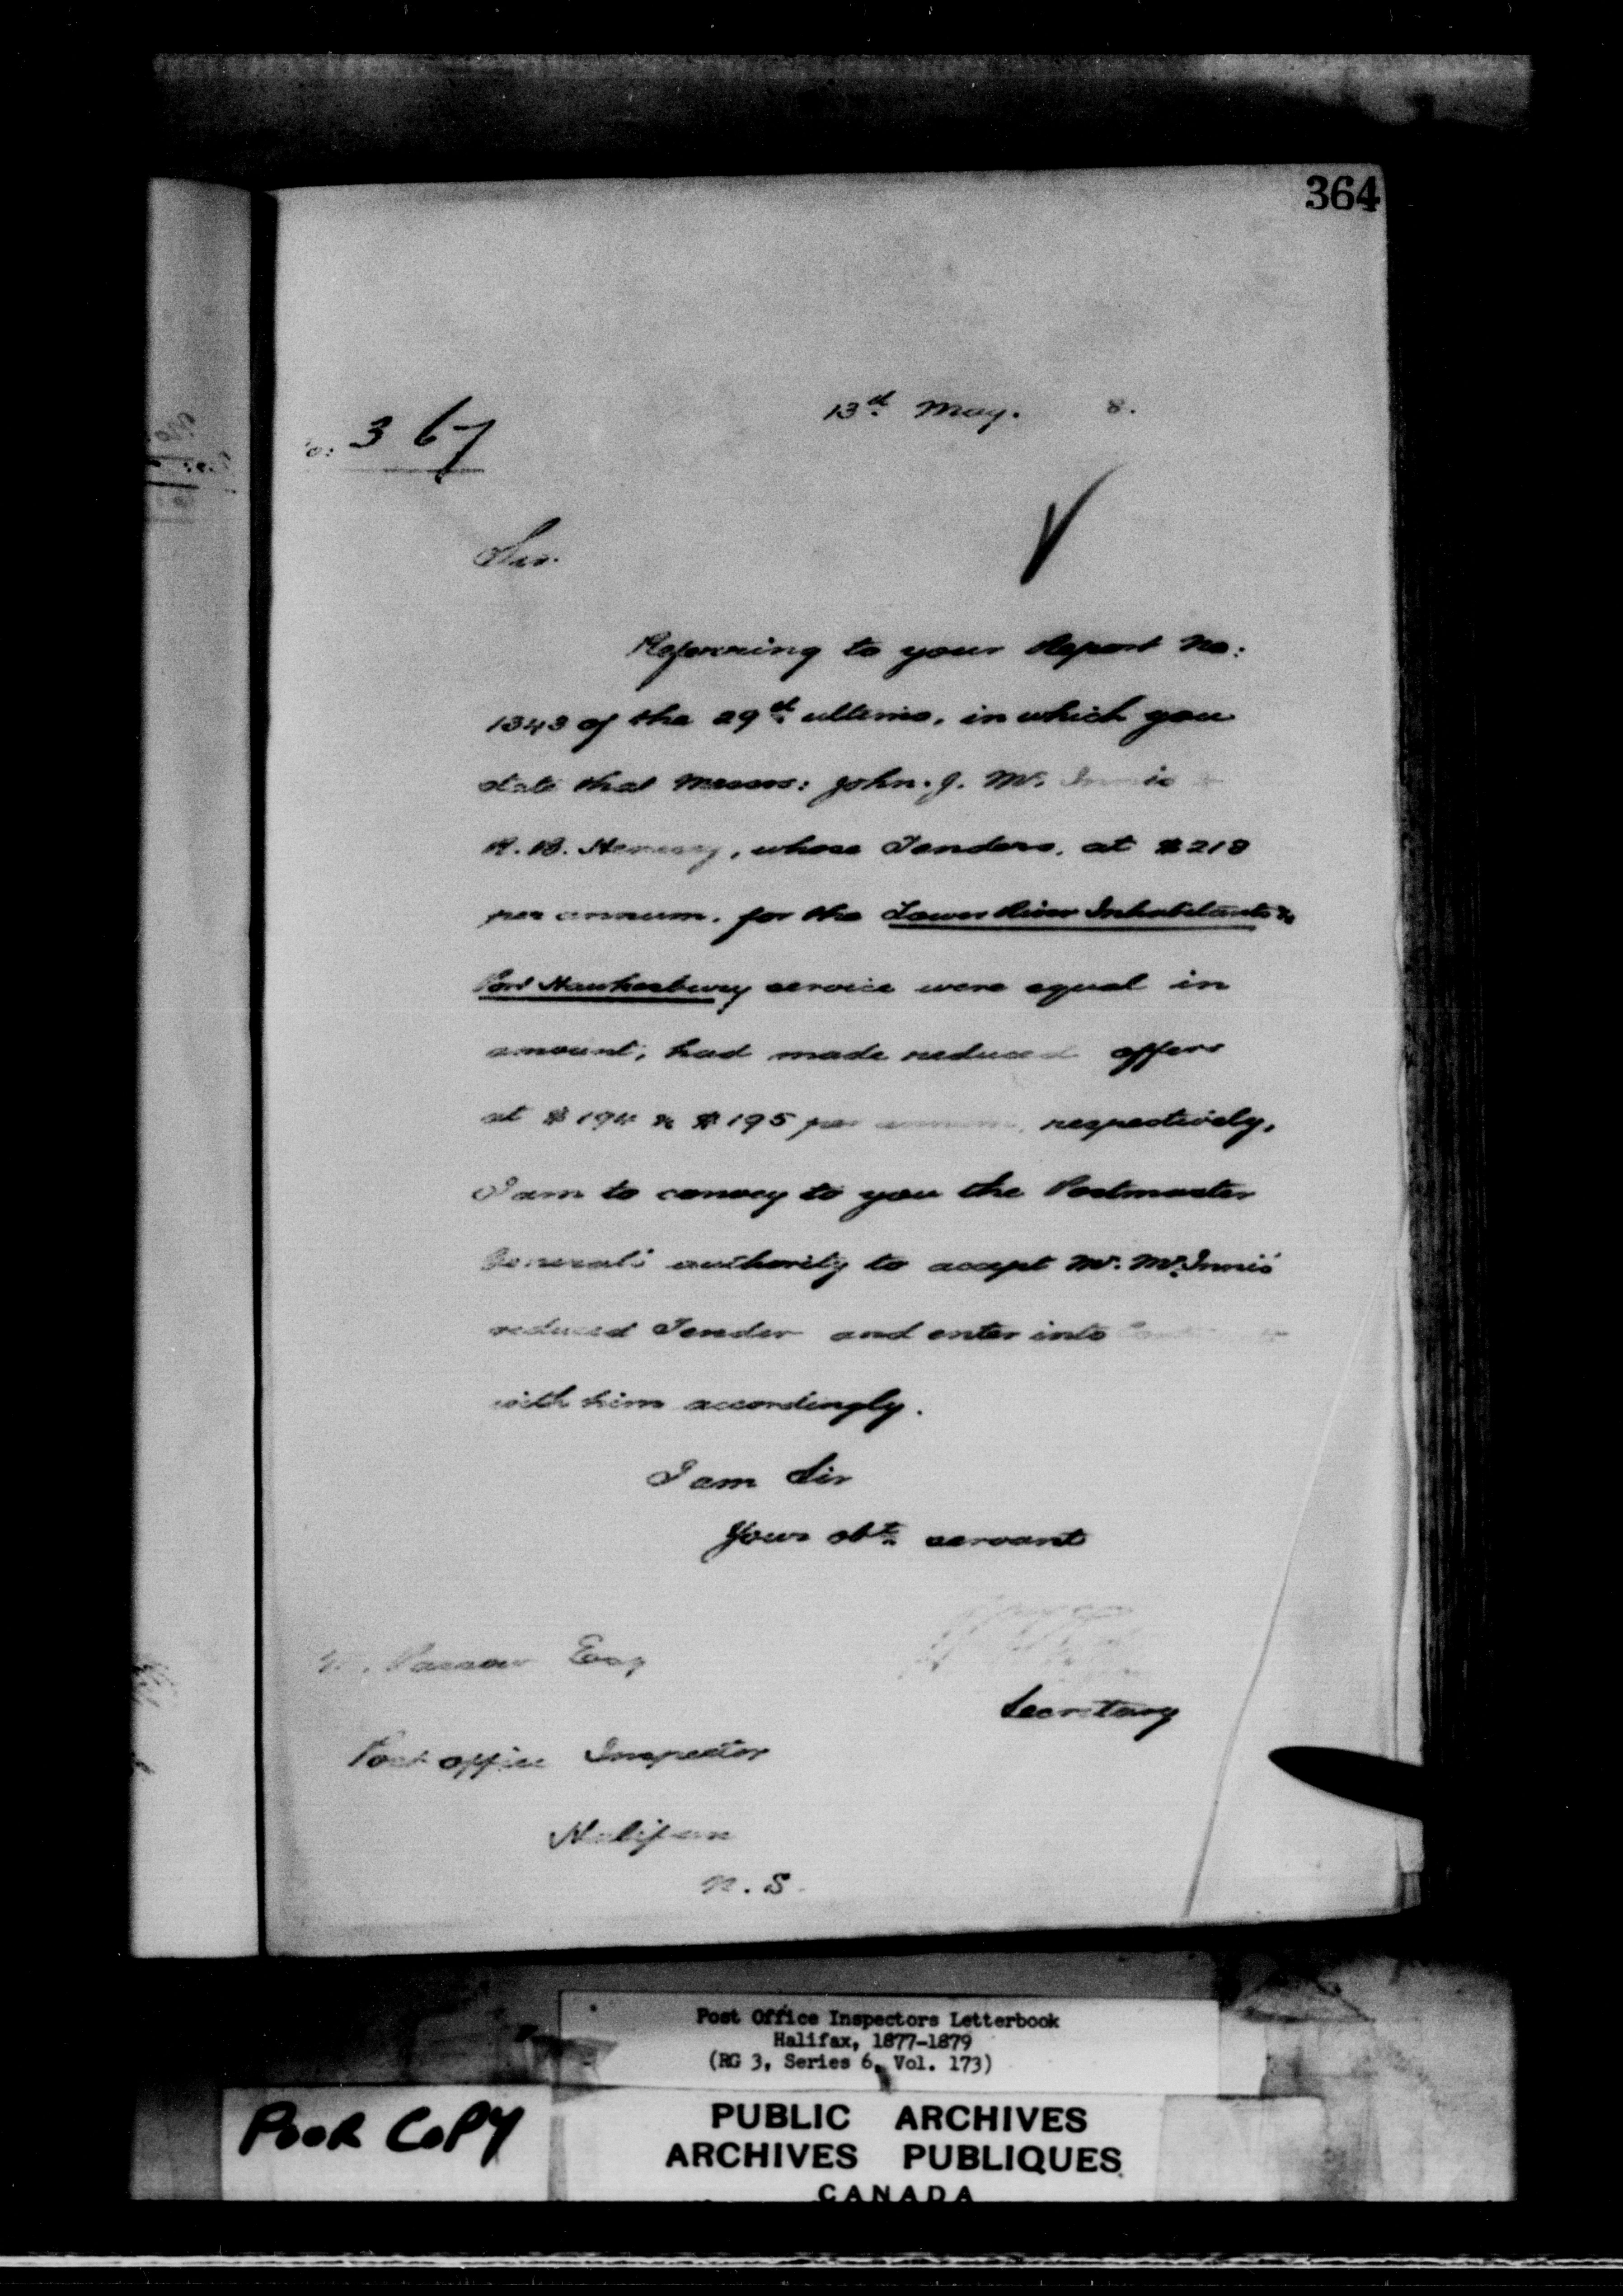 364
13th May. 8.
o: 367
Sir.
Referring to your Report No:
1343 of the 29th ultimo, in which you
state that Messrs: John. J. Mc. Innis &
R. B. , whose Tenders, at $218
per annum, for the Lower River Inhabitants &
Port Hawkesbury service were equal in
amount, had made reduced offers
at $194 & $195 per annum, respectively,
I am to convey to you the Postmaster
General's authority to accept Mr. McInnis'
reduced Tender and enter into
with him accordingly.
I am Sir
Your obt. servant
Esq
Secretary
Post office Inspector
Halifax
N. S.
Post Office Inspectors Letterbook
Halifax, 1877-1879
(RG 3, Series 6, Vol. 173)
POOR COPY
PUBLIC ARCHIVES
ARCHIVES PUBLIQUES
CANADA